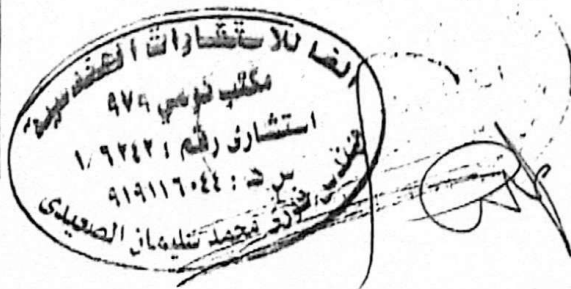 الفا للاستشارات الهندسية
مكتب نوعي ٩٧٩
استشارى رقم : ١/٩٢٤٢
س ت : ٩١٩١١٦٠٤٤
محمد سليمان الصعيدى